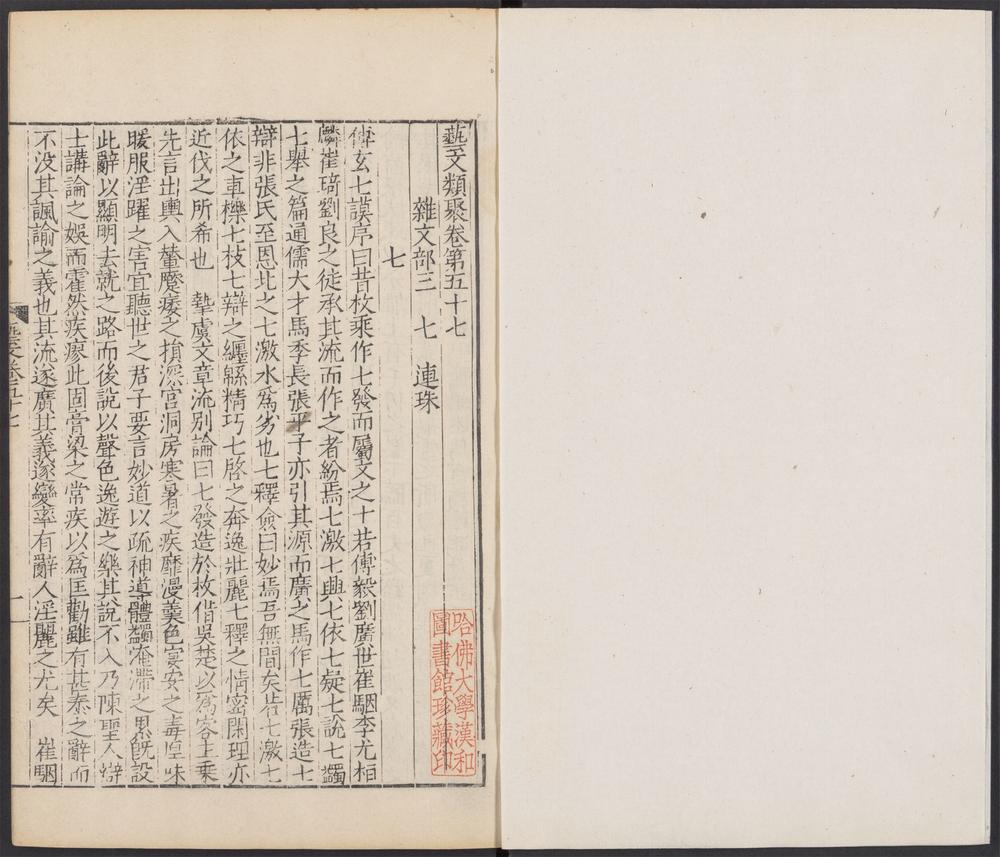 藝文類聚卷第五十七
雜文部三 七 連珠
七
傅玄七謨序曰昔枚乘作七發而屬文之士若傅毅劉廣世崔駰李尤桓
麟崔琦劉良之徒承其流而作之者紛焉七激七興七依七疑七說七蠲
七舉之篇通儒大才馬季長張平子亦引其源而廣之馬作七厲張造七
辯非張氏至思比之七激水為劣也七釋僉曰妙焉吾無間矣若七激七
依之車櫟七枝七辯之纏緜精巧七啓之奔逸壯麗七釋之情密閑理亦
近伐之所希也 摯虞文章流別論曰七發造於枚偕吳楚以為客主乗
先言出輿入輦蹷痿之損深宫洞房寒暑之疾靡漫羙色宴安之毒厚味
暖服淫躍之害宜聽世之君子要言妙道以疏神導體蠲淹滯之累旣設
此辭以顯明去就之路而後說以聲色逸遊之樂其說不入乃陳聖人辯
士講論之娛而霍然疾瘳此固膏梁之常疾以為匡勸雖有甚泰之辭而
不没其諷諭之義也其流遂廣其義遂變率有辭人淫麗之尤矣 崔駰
藝文卷五十七
一
哈佛大學漢和
圖書館珍藏印